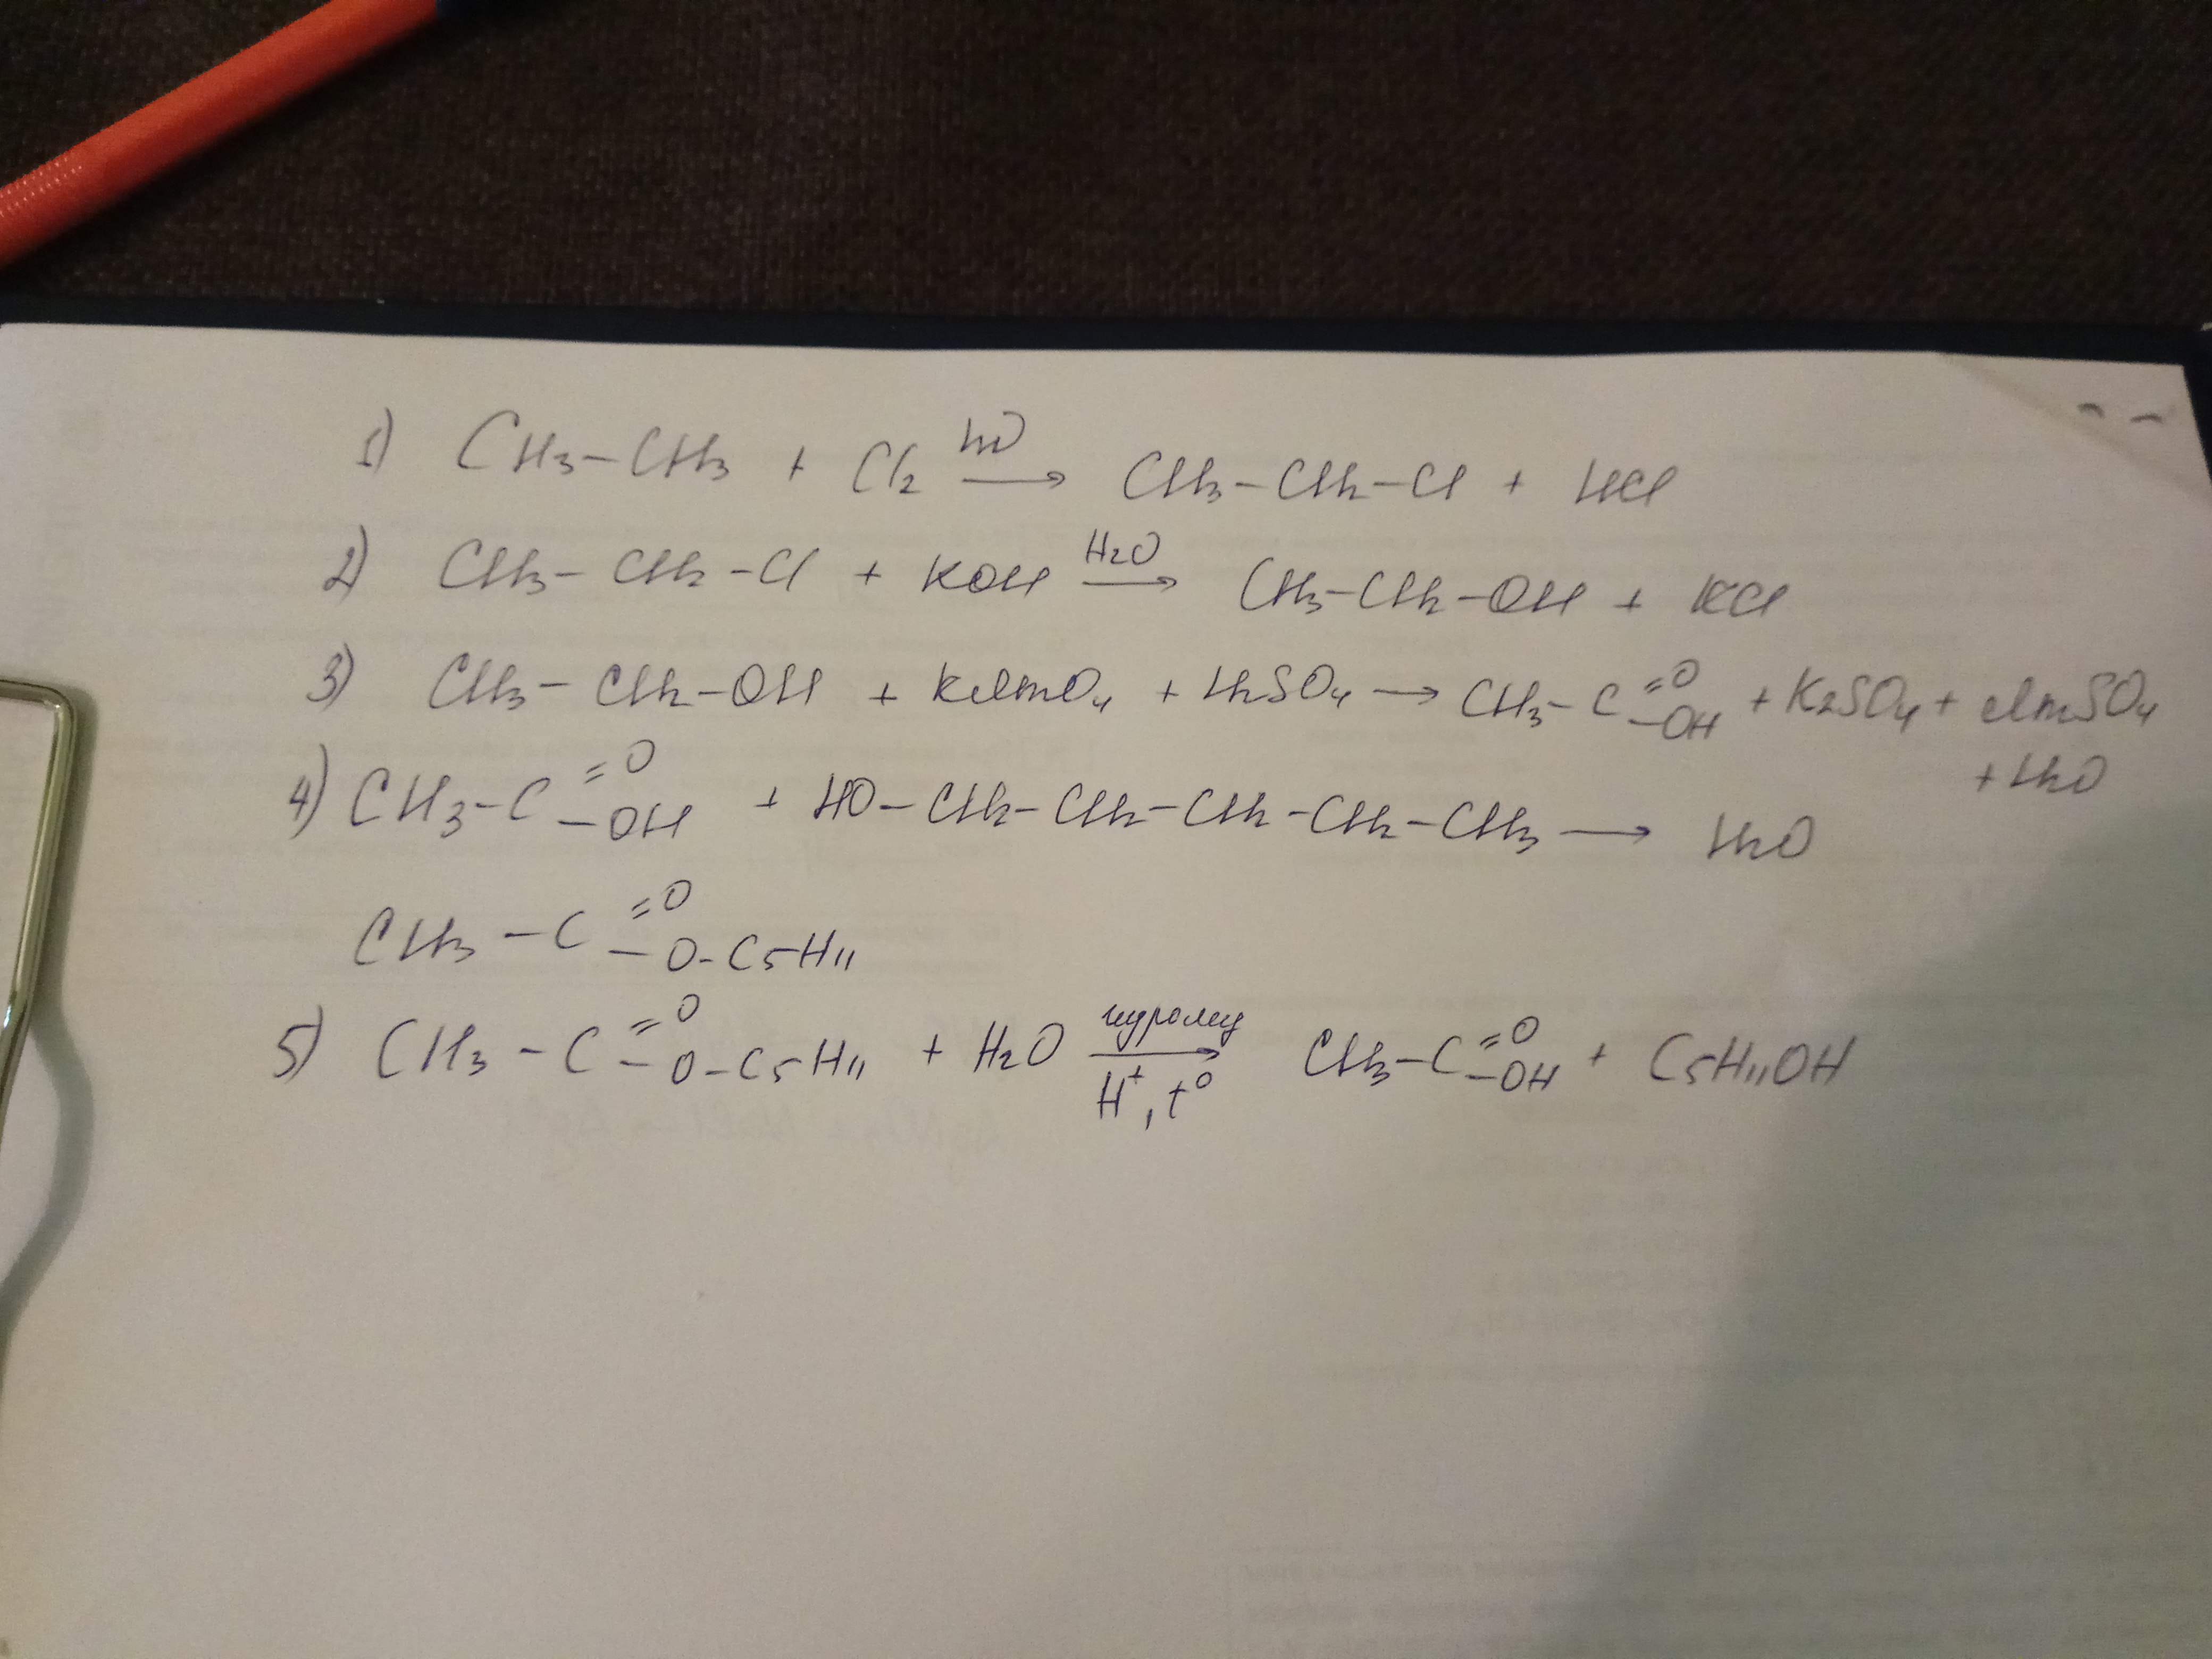 1) CH3-CH3 + Cl2 hν → CH3-CH2-Cl + HCl
2) CH3-CH2-Cl + KOH H2O → CH3-CH2-OH + KCl
3) CH3-CH2-OH + KMnO4 + H2SO4 → CH3-C=O-OH + K2SO4 + MnSO4
+ H2O
4) CH3-C=O-OH + HO-CH2-CH2-CH2-CH2-CH3 → H2O
CH3-C=O-O-C5H11
5) CH3-C=O-O-C5H11 + H2O гидролиз → H+, t° CH3-C=O-OH + C5H11OH